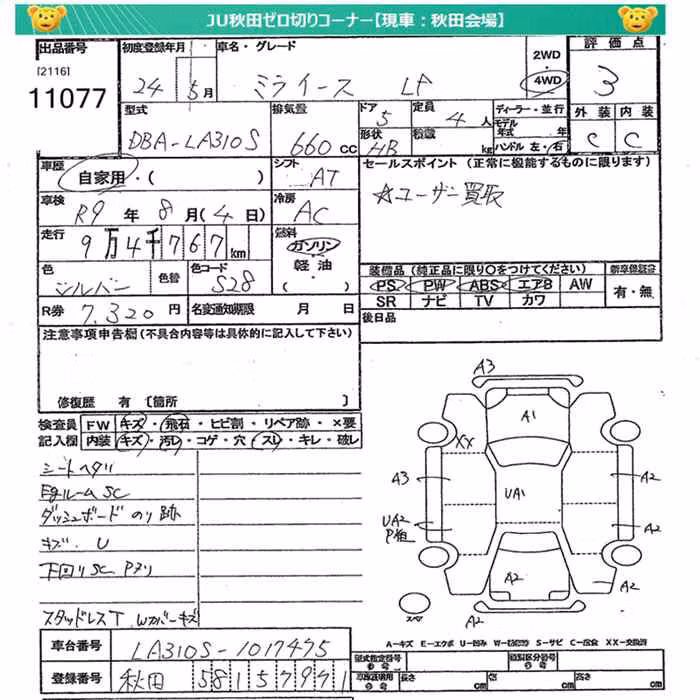 JU秋田ゼロ切りコーナー【現車：秋田会場】
出品番号
[2116]
11077
初度登録年月
24年 5月
車名・グレード
ミライース Lf
2WD・4WD
評価点
3
型式
DBA-LA310S
排気量
660cc
ドア
5
形状
HB
定員
4人
積載
kg
ディーラー・並行
モデル年式 年
ハンドル 左・右
外装
C
内装
C
車歴
自家用・( )
シフト
AT
セールスポイント（正常に機能するものに限ります）
☆ユーザー買取
車検
R9年 8月(4日)
冷房
AC
走行
9万4千767km
燃料
ガソリン・軽油・( )
色
シルバー
色替
色コード
S28
装備品（純正品に限り○をつけてください）
PS PW ABS エアB AW
SR ナビ TV カワ
新車保証書
有・無
R券
7,320円
名変通知期限 月 日
後日品
注意事項申告欄(不具合内容等は具体的に記入して下さい)
修復歴 有〔箇所 〕
検査員記入欄
FW キズ・飛石・ヒビ割・リペア跡・×要
内装 キズ・汚レ・コゲ・穴・スレ・キレ・破レ
シートヘタリ
Egルーム SC
ダッシュボード のり跡
キズ、U
下回りSC Pヌリ
スタッドレスT Wカバーキズ
A3
A1
XX
A3
UA1
A2
UA2
A2
A2
A2
スペア
A-キズ E-エクボ U-凹み W-補修跡 S-サビ C-腐食 XX-交換済
車台番号
LA310S-1017475
登録番号
秋田 581 5 7971
型式指定番号
類別区分番号
長さ cm
巾 cm
高さ cm